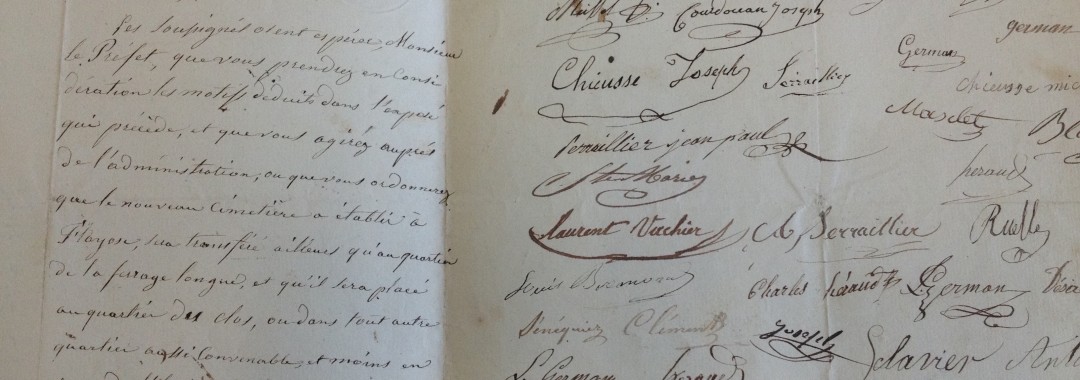 Les Soussignés osent espérer, Monsieur
le Préfet, que vous prendrez en Consi
dération les motifs déduits dans l'exposé
qui précède, et que vous agirez auprès
de l'administration, ou que vous ordonnerez
que le nouveau Cimetière a établir à
Flayosc, sera transféré ailleurs qu'au quartier
de la ferrage longue, et qu'il sera placé
au quartier des clos, ou dans tout autre
quartier aussi Convenable, et moins en
Courdouan Joseph
german
Chieusse Joseph Serraillier
German
Chieusse
Serraillier jean paul
Masclet
Ste Marie
heraud
Laurent Verchier
Serraillier
Ruelle
Louis
Charles héraud
German
Sénéquier Clément
Joseph
Clavier
L. German heraud